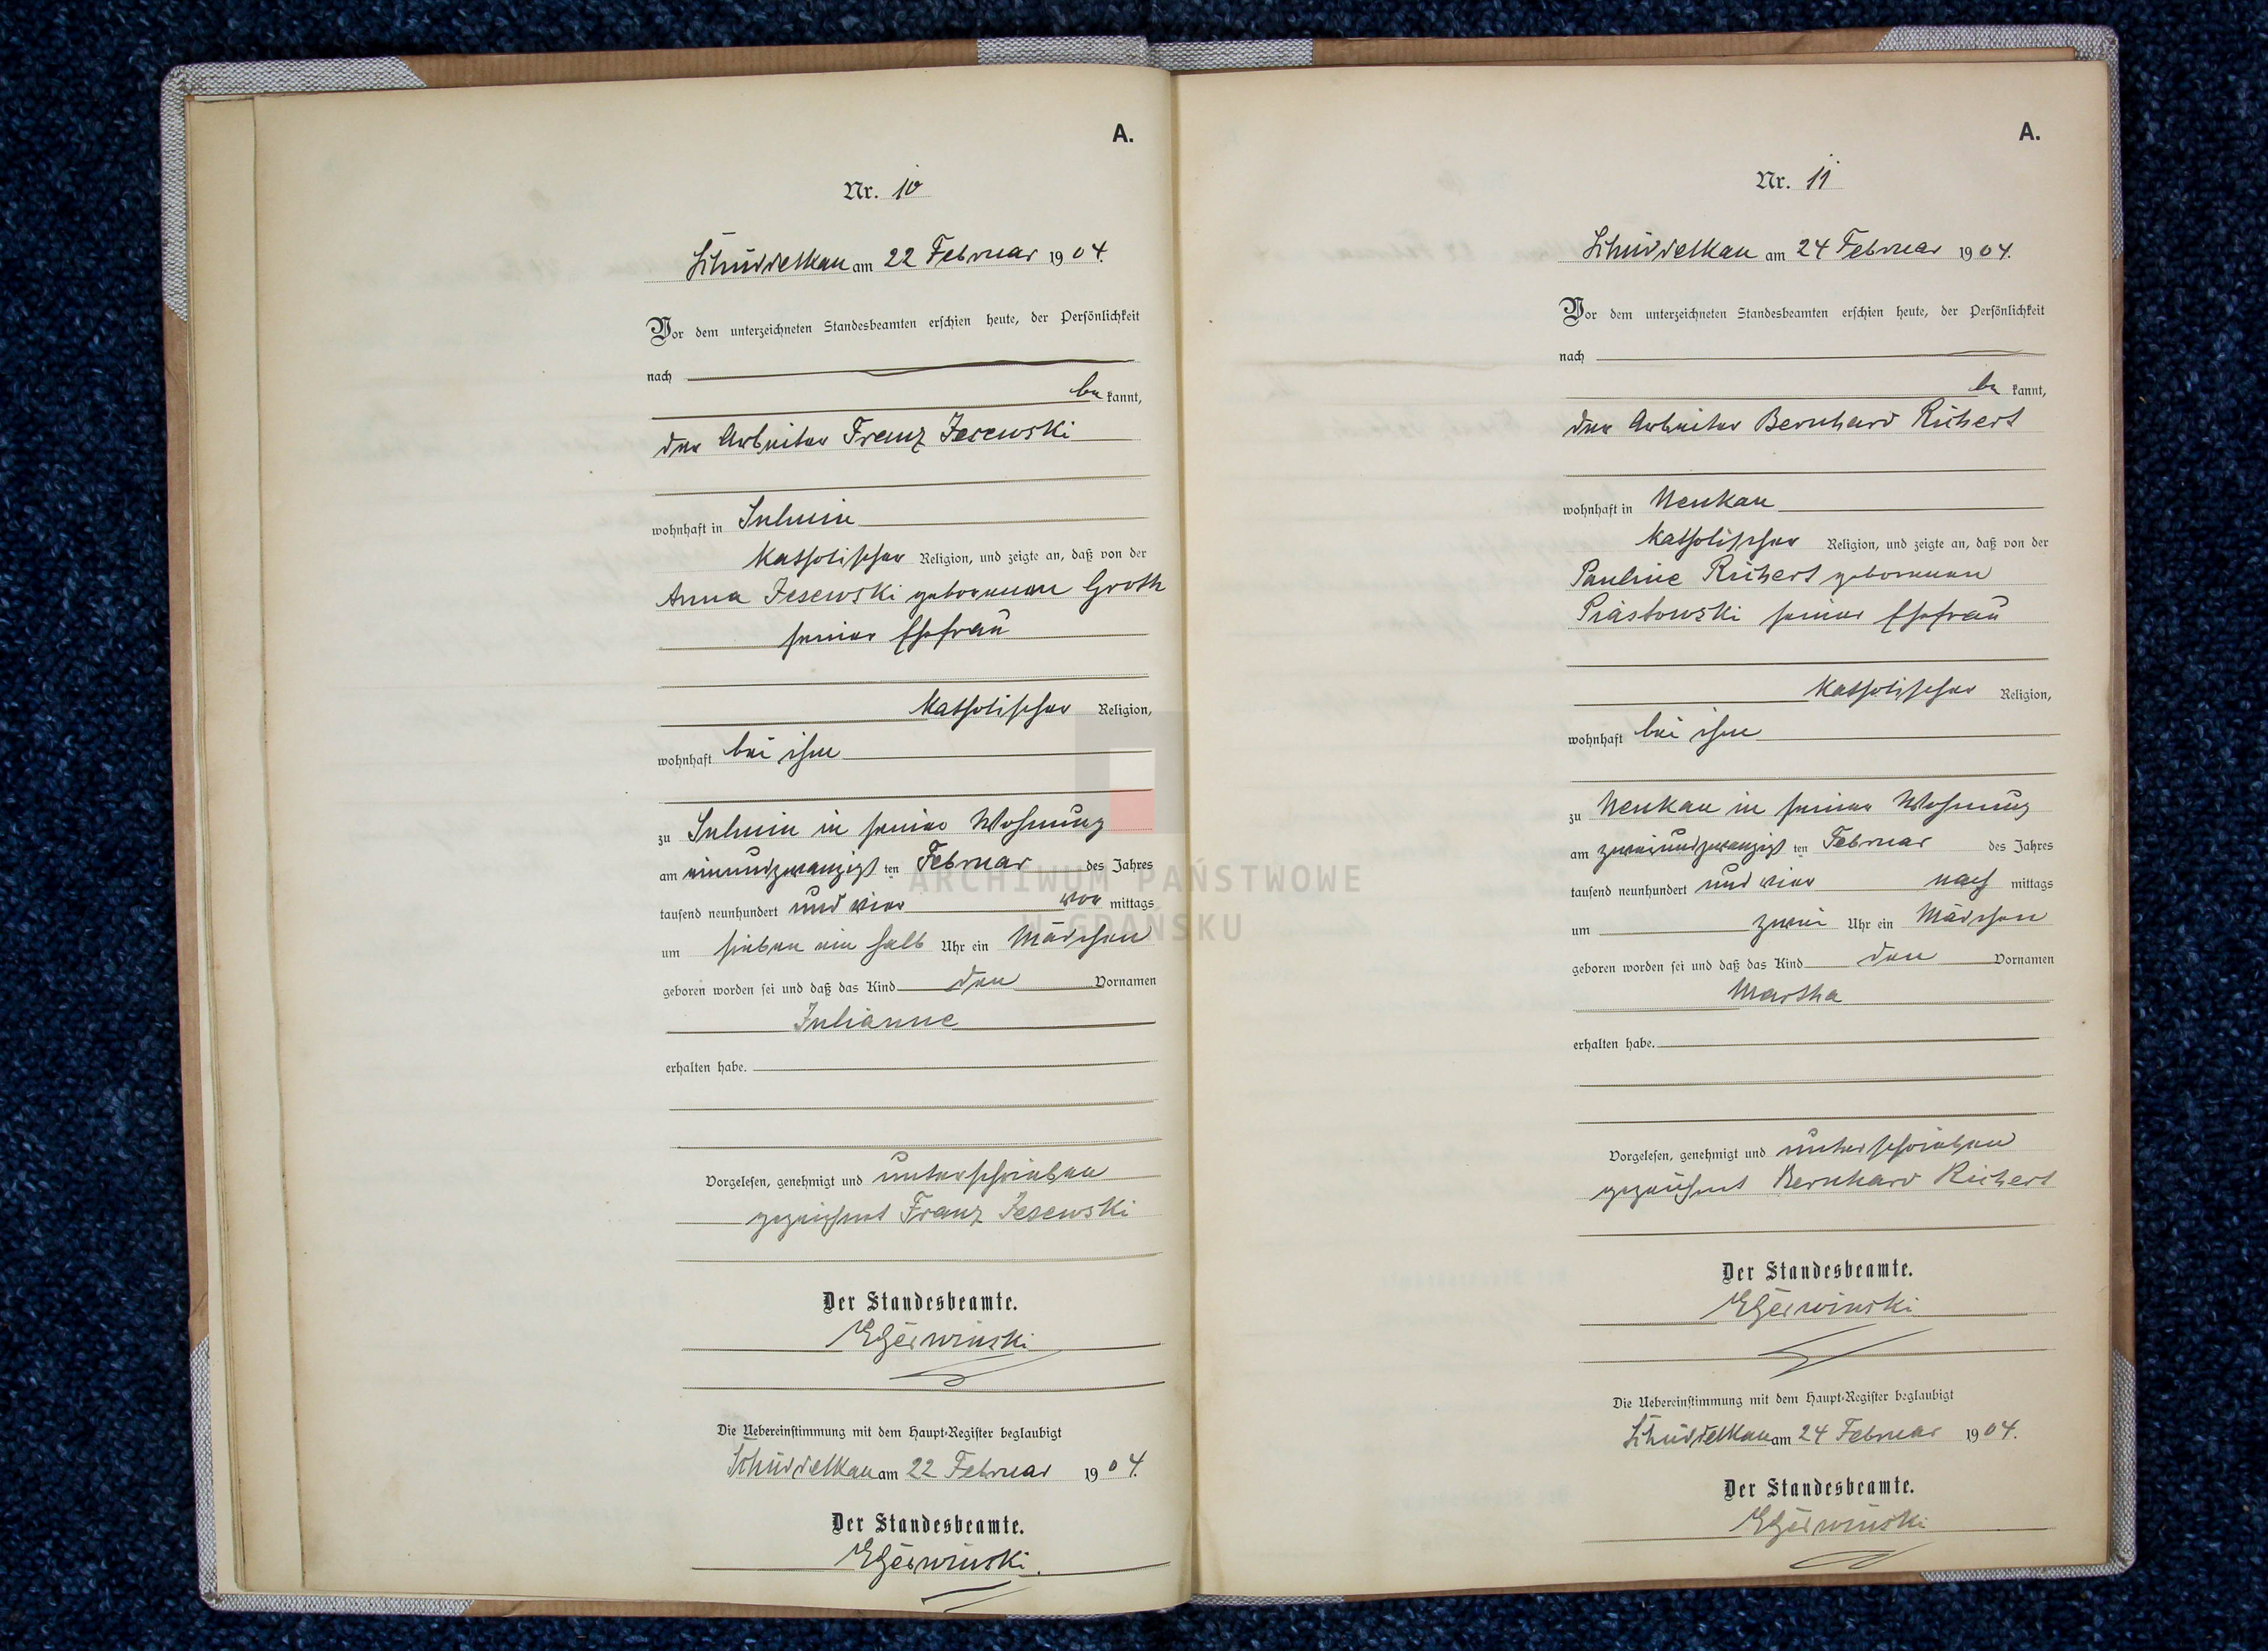 A.
Nr. 10
Schüddelkau am 22 Februar 1904.
Vor dem unterzeichneten Standesbeamten erschien heute, der Persönlichkeit
nach
be kannt,
der Arbeiter Franz Jesewski
wohnhaft in Sulmin
katholischer Religion, und zeigte an, daß von der
Anna Jesewski geborenen Groth
seiner Ehefrau
katholischer Religion,
wohnhaft bei ihm
zu Sulmin in seiner Wohnung
am einundzwanzigst ten Februar des Jahres
tausend neunhundert und vier vor mittags
um sieben ein halb Uhr ein Mädchen
geboren worden sei und daß das Kind den Vornamen
Julianne
erhalten habe.
Vorgelesen, genehmigt und unterschrieben
gezeichnet Franz Jesewski
Der Standesbeamte.
Die Uebereinstimmung mit dem Haupt-Register beglaubigt
Schüddelkau am 22 Februar 1904.
Der Standesbeamte.
A.
Nr. 11
Schüddelkau am 24 Februar 1904.
Vor dem unterzeichneten Standesbeamten erschien heute, der Persönlichkeit
nach
be kannt,
der Arbeiter Bernhard Richert
wohnhaft in Nenkau
katholischer Religion, und zeigte an, daß von der
Pauline Richert geborenen
Piastowski seiner Ehefrau
katholischer Religion,
wohnhaft bei ihm
zu Nenkau in seiner Wohnung
am zweiundzwanzigst ten Februar des Jahres
tausend neunhundert und vier nach mittags
um zwei Uhr ein Mädchen
geboren worden sei und daß das Kind den Vornamen
Martha
erhalten habe.
Vorgelesen, genehmigt und unterschrieben
gezeichnet Bernhard Richert
Der Standesbeamte.
Die Uebereinstimmung mit dem Haupt-Register beglaubigt
Schüddelkau am 24 Februar 1904.
Der Standesbeamte.
ARCHIWUM PAŃSTWOWE
W GDAŃSKU